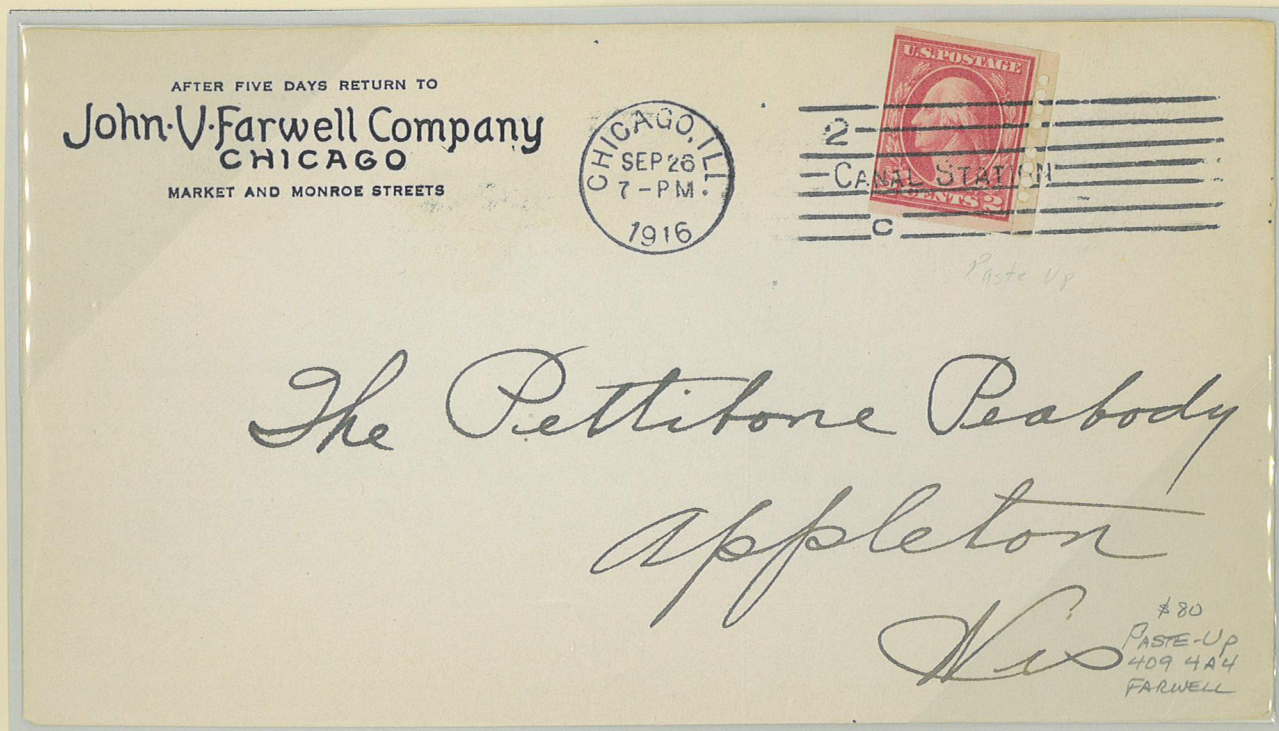 AFTER FIVE DAYS RETURN TO
John·V·Farwell Company
CHICAGO
MARKET AND MONROE STREETS
CHICAGO, ILL.
SEP 26
7-PM
1916
2
CANAL STATION
C
U.S. POSTAGE
2 CENTS 2
Paste Up
The Pettibone Peabody
Appleton
Wis
$80
PASTE-UP
409 4A4
FARWELL